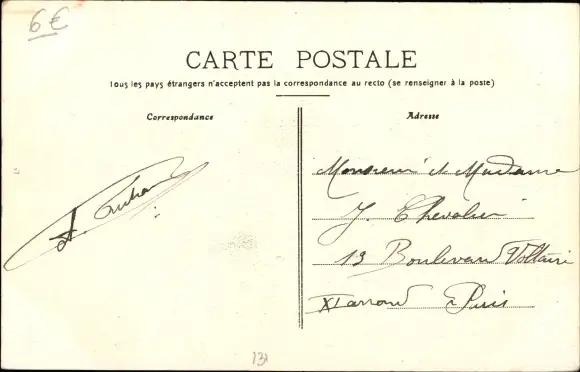 6€
CARTE POSTALE
Tous les pays étrangers n'acceptent pas la correspondance au recto (se renseigner à la poste)
Correspondance
Adresse
Monsieur et Madame
J. Chevalier
13 Boulevard Voltaire
XI arrond à Paris
131